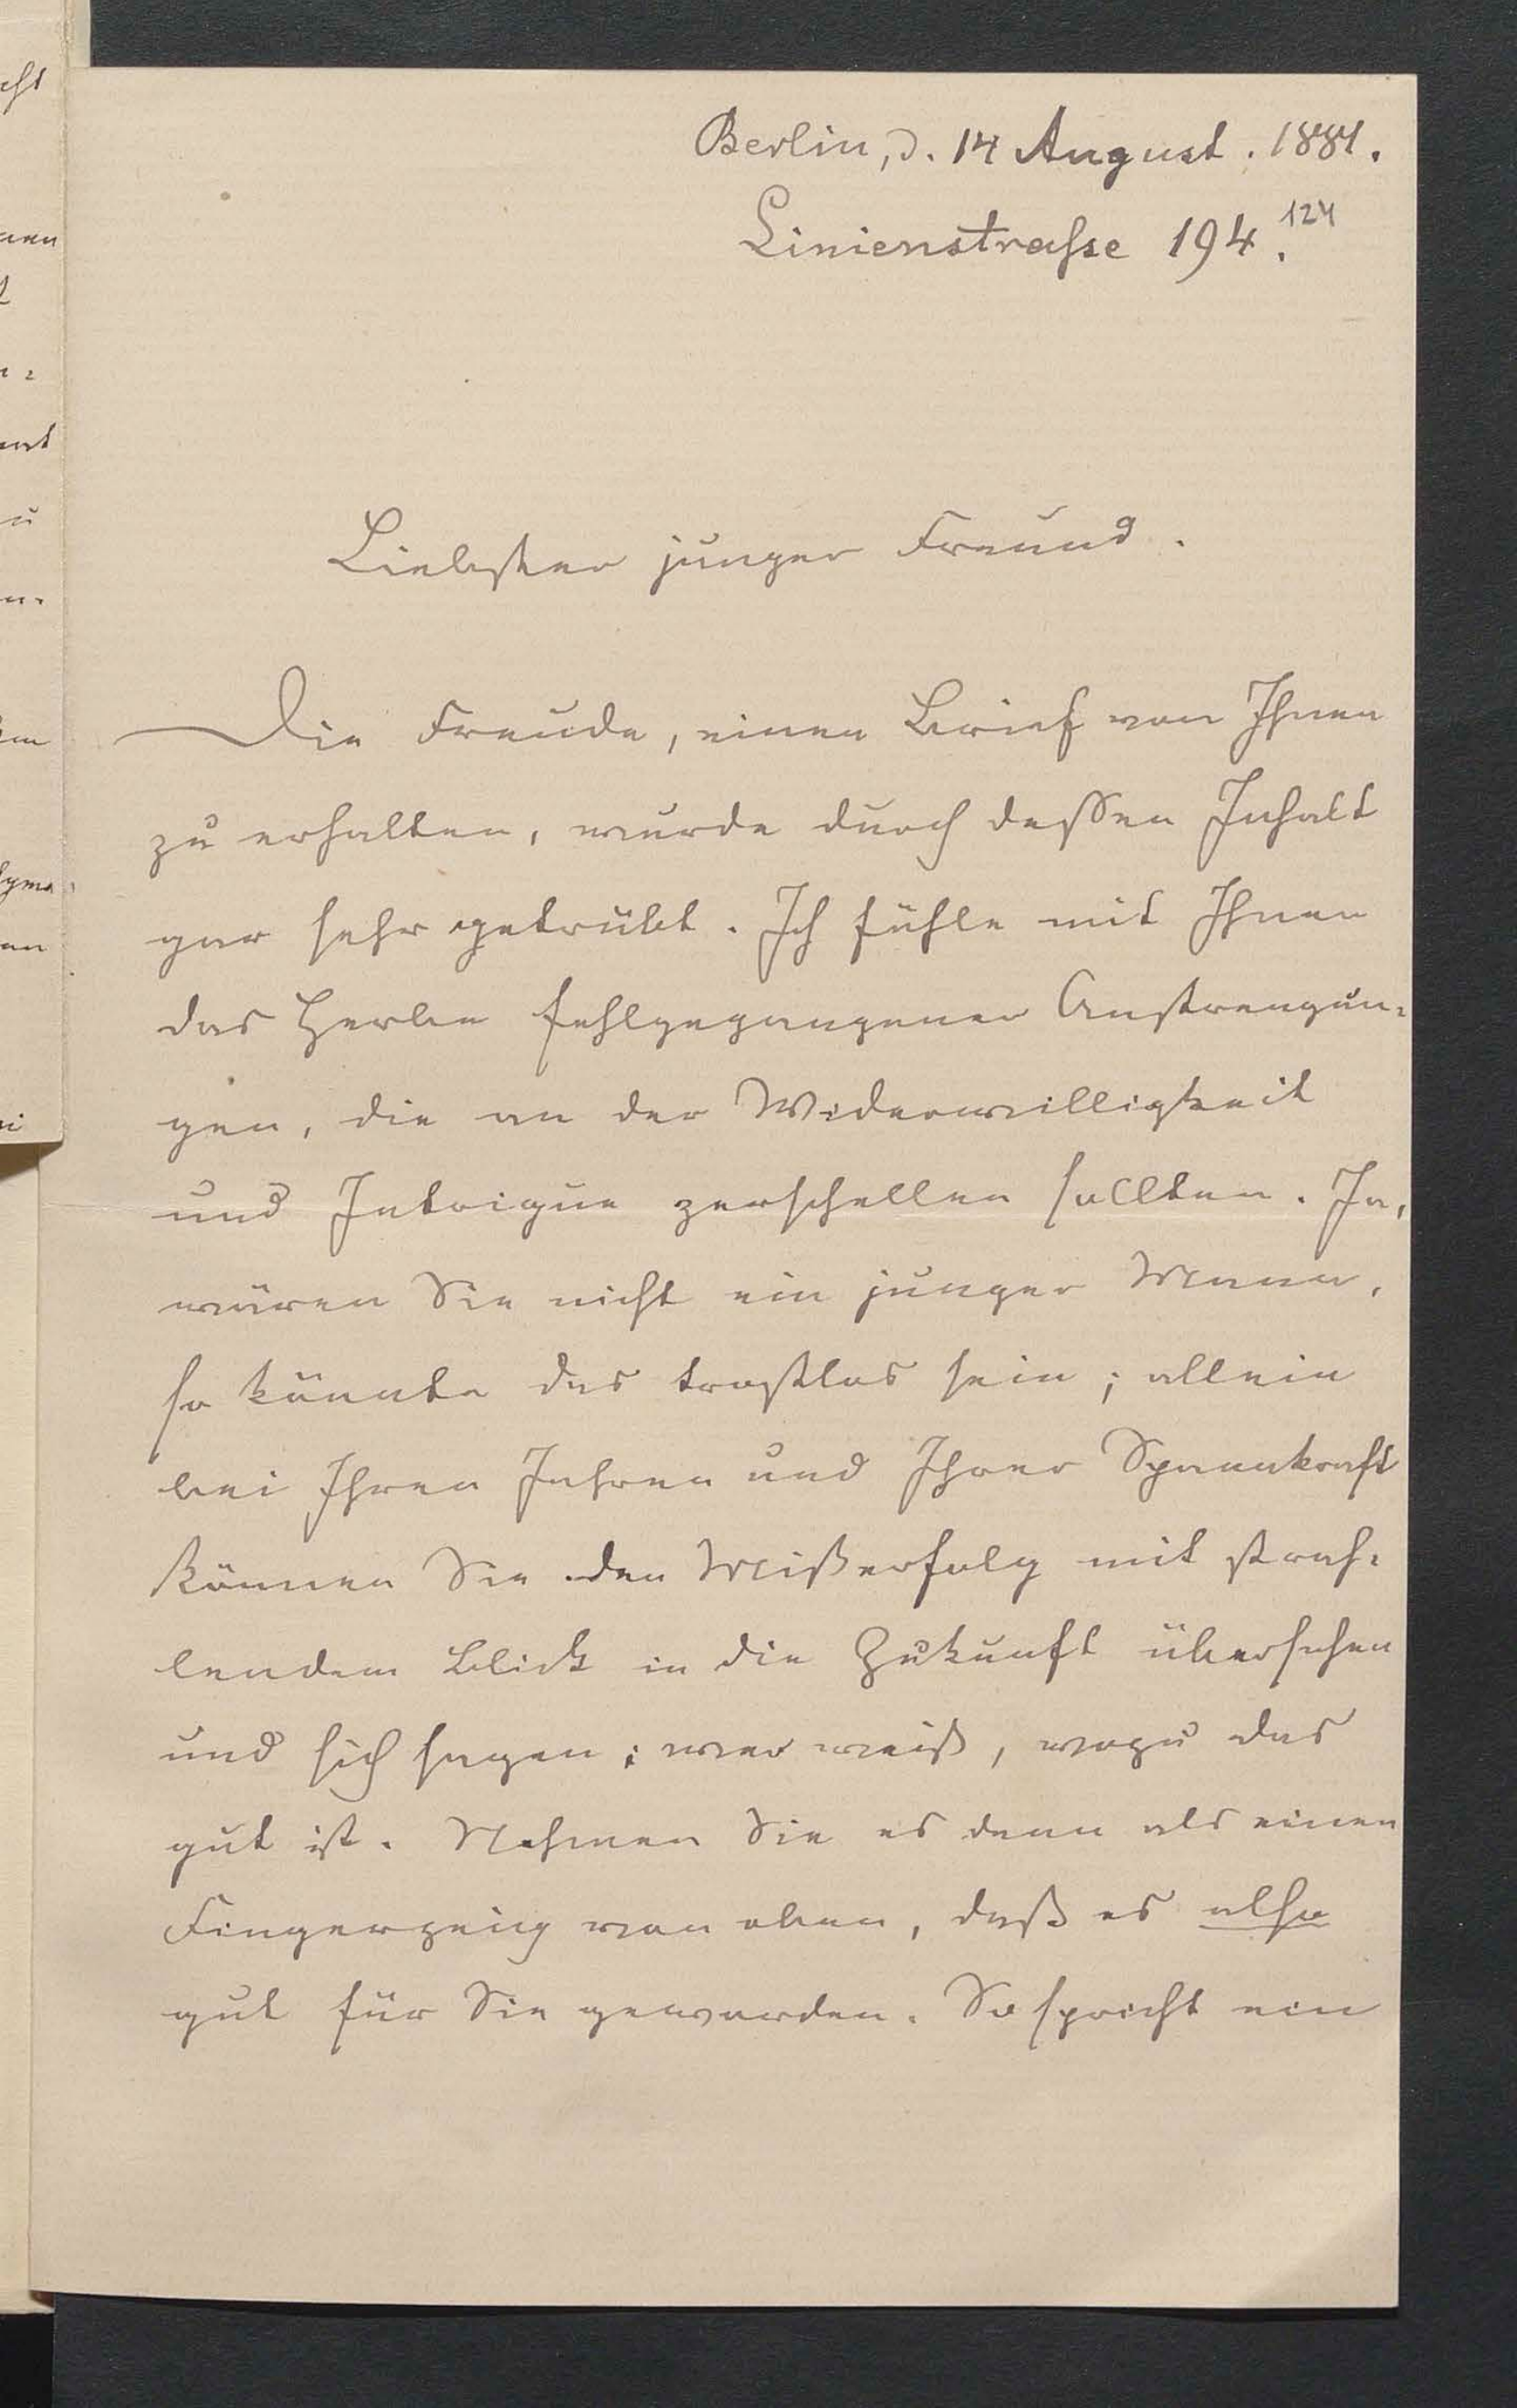 Berlin, d. 14 August. 1881.
Linienstraße 194.
124
Liebster junger Freund.
Die Freude, einen Brief von Ihnen
zu erhalten, wurde durch dessen Inhalt
gar sehr getrübt. Ich fühle mit Ihnen
das Herbe fehlgegangener Anstrengun-
gen, die an der Widerwilligkeit
und Intrigue zerschellen sollten. Ja,
wären Sie nicht ein junger Mann,
so könnte das trostlos sein; allein
bei Ihren Jahren und Ihrer Spannkraft
können Sie den Mißerfolg mit strah-
lendem Blick in die Zukunft übersehen
und sich sagen: wer weiß, wozu das
gut ist. Nehmen Sie es denn als einen
Fingerzeig von oben, daß es also
gut für Sie geworden. So spricht ein